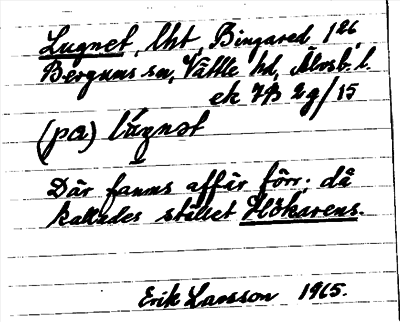 Lugnet, lht, Bingared 1²⁶
Bergums sn, Vättle hd, Älvsb. l.
ek 7B 2g/15
(pɑ) lúgnət
Där fanns affär förr. då
kallades stället Hökarens.
Erik Larsson 1965.